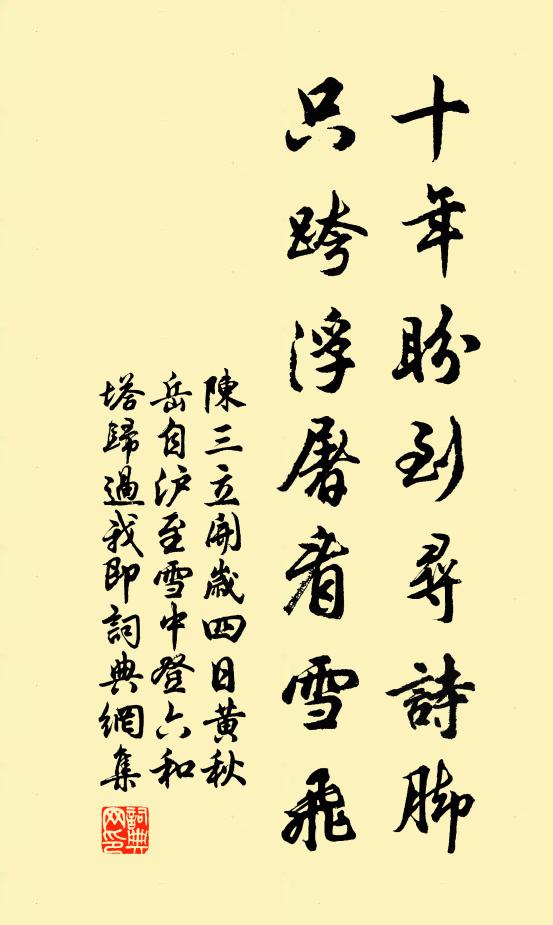 十年盼到尋詩脚
只跨浮屠看雪飛
陳三立開歲四日黄秋
岳自沪至雪中登六和
塔歸過我即詞典網集
詞典网印